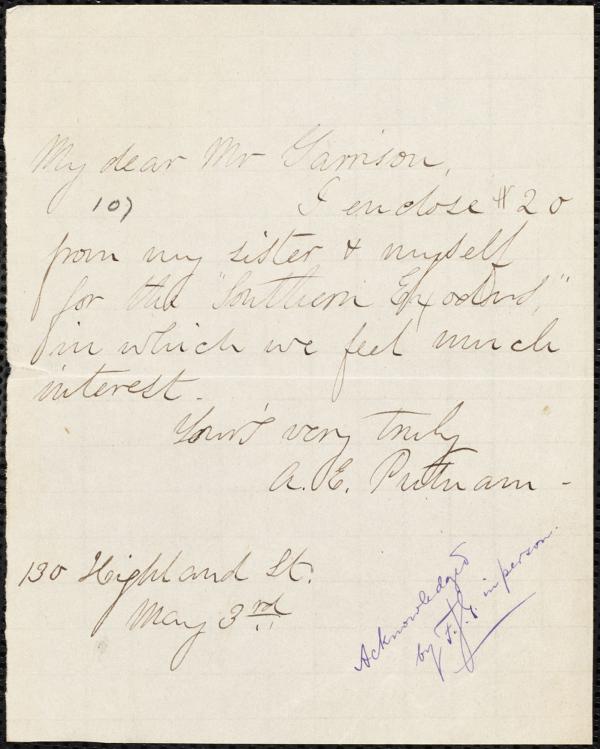 My dear Mr Garrison,
107 I enclose $20
from my sister & myself
for the "Southern Exodus,"
in which we feel much
interest.
Your's very truly
A. E. Putnam -
130 Highland St.
May 3rd
Acknowledged
by F.J.G. in person.